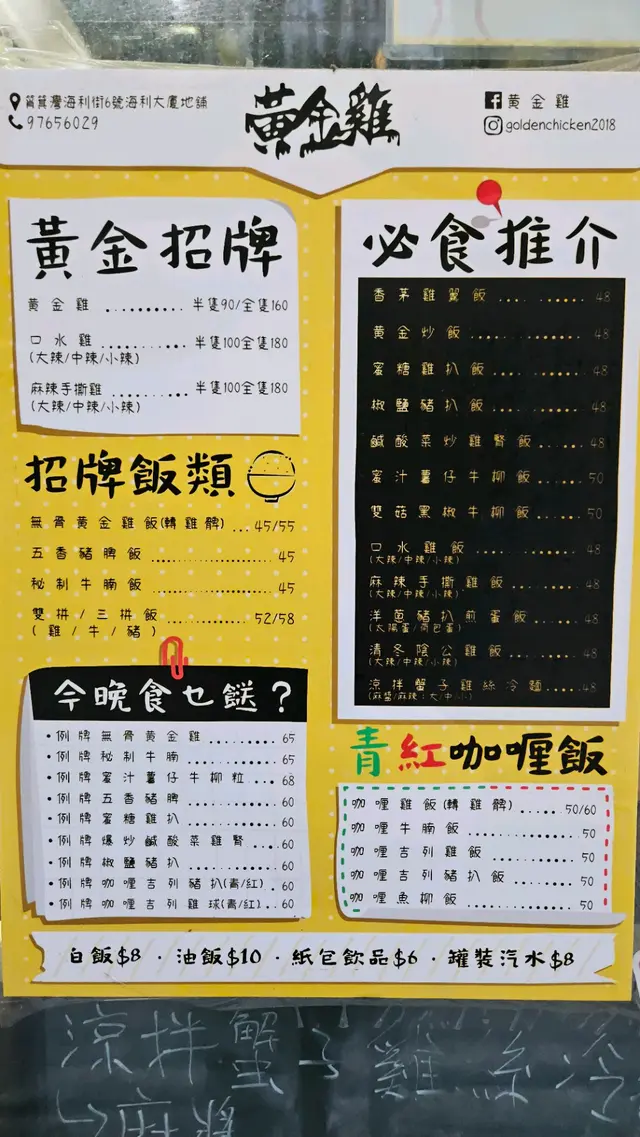 筲箕灣海利街6號海利大廈地舖
97656029
黃金雞
黃金雞
goldenchicken2018
黃金招牌
黃金雞 .......... 半隻90/全隻160
口水雞 .......... 半隻100全隻180
(大辣/中辣/小辣)
麻辣手撕雞 ........ 半隻100全隻180
(大辣/中辣/小辣)
招牌飯類
無骨黃金雞飯(轉雞髀) ... 45/55
五香豬脾飯 .......... 45
秘制牛腩飯 .......... 45
雙拼/三拼飯 .......... 52/58
(雞/牛/豬)
今晚食乜餸？
•例牌無骨黃金雞 .......... 65
•例牌秘制牛腩 .......... 65
•例牌蜜汁薯仔牛柳粒 ... 68
•例牌五香豬脾 .......... 60
•例牌蜜糖雞扒 .......... 60
•例牌爆炒鹹酸菜雞腎 .... 60
•例牌椒鹽豬扒 .......... 60
•例牌咖喱吉列豬扒(青/紅) . 60
•例牌咖喱吉列雞球(青/紅) .. 60
必食推介
香茅雞翼飯 .......... 48
黃金炒飯 .......... 48
蜜糖雞扒飯 .......... 48
椒鹽豬扒飯 .......... 48
鹹酸菜炒雞腎飯 ..... 48
蜜汁薯仔牛柳飯 ..... 50
雙菇黑椒牛柳飯 ..... 50
口水雞飯 .......... 48
(大辣/中辣/小辣)
麻辣手撕雞飯 ....... 48
(大辣/中辣/小辣)
洋蔥豬扒煎蛋飯 ..... 48
(太陽蛋/荷包蛋)
清冬陰公雞飯 ....... 48
(大辣/中辣/小辣)
涼拌蟹子雞絲冷麵 ..... 48
(麻醬/麻辣：大/中/小)
青紅咖喱飯
咖喱雞飯(轉雞髀) ....... 50/60
咖喱牛腩飯 .......... 50
咖喱吉列雞飯 .......... 50
咖喱吉列豬扒飯 ....... 50
咖喱魚柳飯 .......... 50
白飯$8 · 油飯$10 · 紙包飲品$6 · 罐裝汽水$8
涼拌蟹子雞絲冷